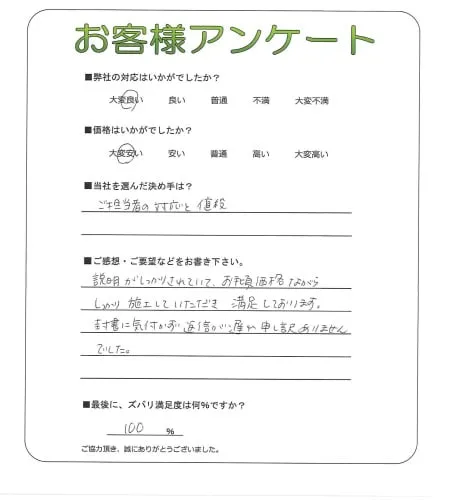 お客様アンケート
■弊社の対応はいかがでしたか?
大変良い 良い 普通 不満 大変不満
■価格はいかがでしたか?
大変安い 安い 普通 高い 大変高い
■当社を選んだ決め手は?
ご担当者の対応と値段
■ご感想・ご要望などをお書き下さい。
説明がしっかりされていて、お手頃価格ながら
しっかり施工していただき 満足しております。
封書に気付かず返信が遅れ申し訳ありません
でした。
■最後に、ズバリ満足度は何%ですか?
100 %
ご協力頂き、誠にありがとうございました。